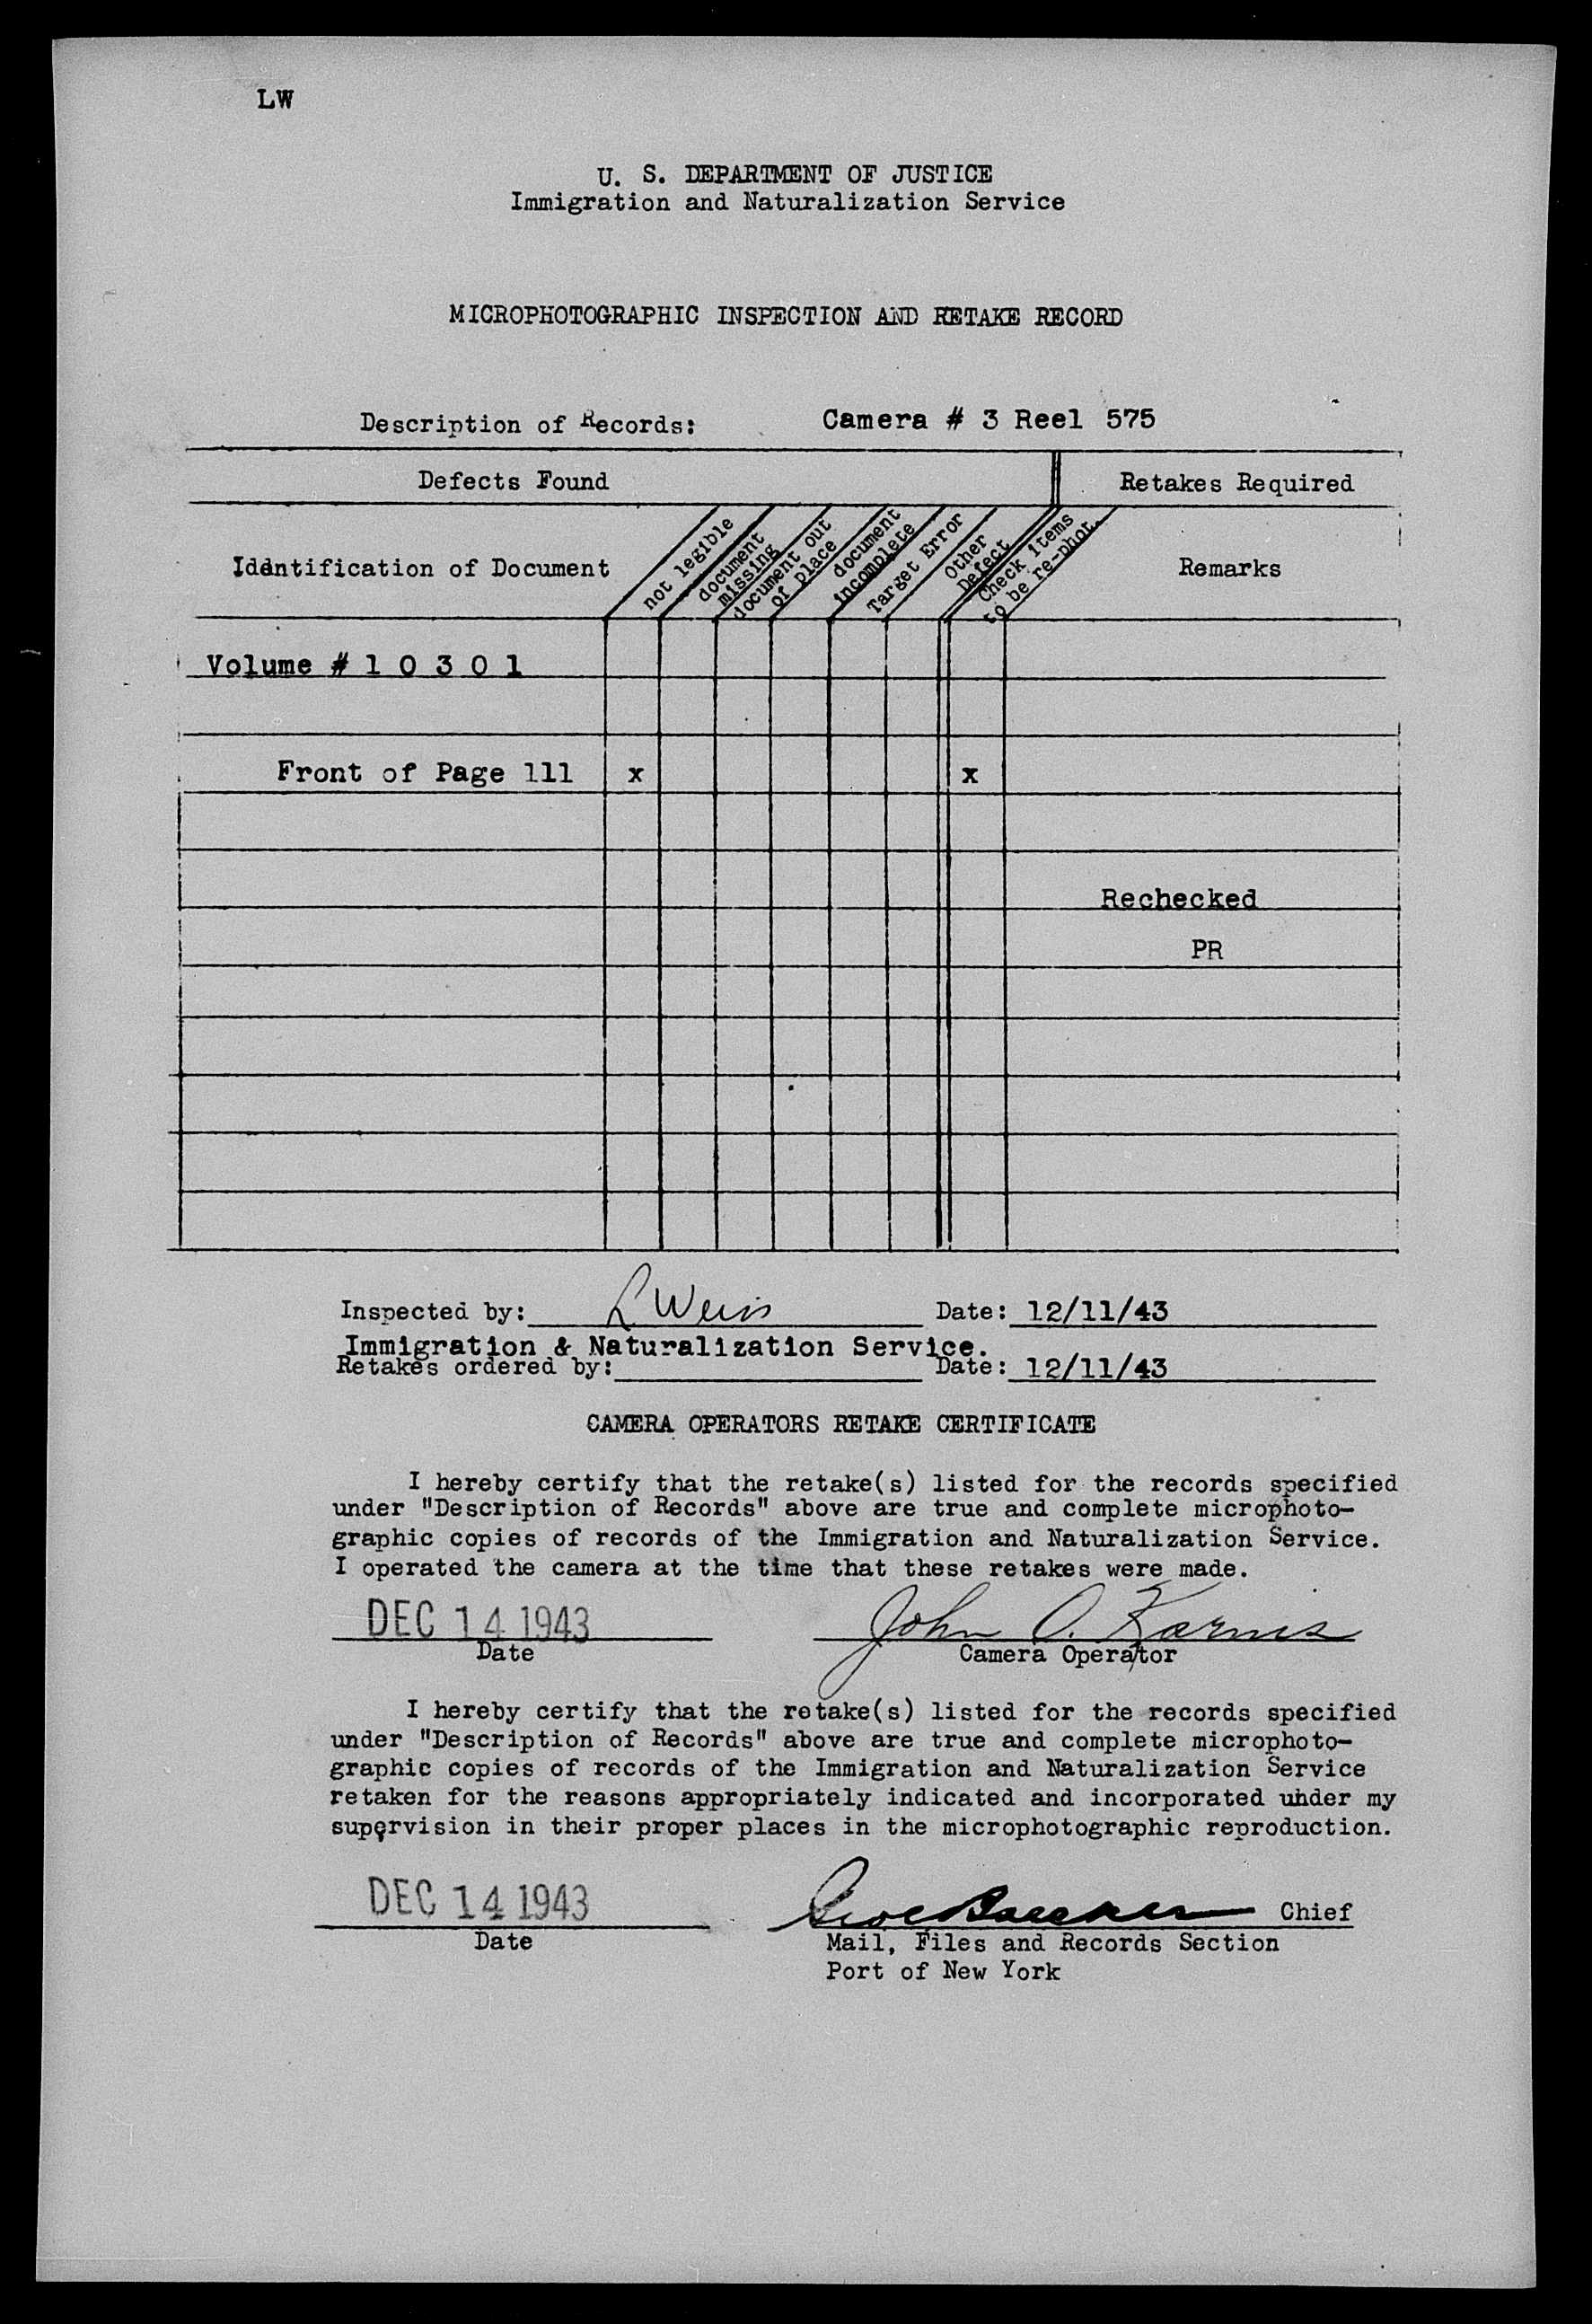 LW
U. S. DEPARTMENT OF JUSTICE
Immigration and Naturalization Service
MICROPHOTOGRAPHIC INSPECTION AND RETAKE RECORD
Description of Records: Camera # 3 Reel 575
Defects Found Retakes Required
Identification of Document
not legible
document missing
document out of place
document incomplete
Target Error
Other Defect
Check items to be re-phot.
Remarks
Volume # 1 0 3 0 1
Front of Page 111 x x
Rechecked
PR
Inspected by: L Weiss Date: 12/11/43
Immigration & Naturalization Service.
Retakes ordered by: Date: 12/11/43
CAMERA OPERATORS RETAKE CERTIFICATE
I hereby certify that the retake(s) listed for the records specified
under "Description of Records" above are true and complete microphoto-
graphic copies of records of the Immigration and Naturalization Service.
I operated the camera at the time that these retakes were made.
DEC 14 1943 John O. Karnis
Date Camera Operator
I hereby certify that the retake(s) listed for the records specified
under "Description of Records" above are true and complete microphoto-
graphic copies of records of the Immigration and Naturalization Service
retaken for the reasons appropriately indicated and incorporated under my
supervision in their proper places in the microphotographic reproduction.
DEC 14 1943 Chief
Date Mail, Files and Records Section
Port of New York